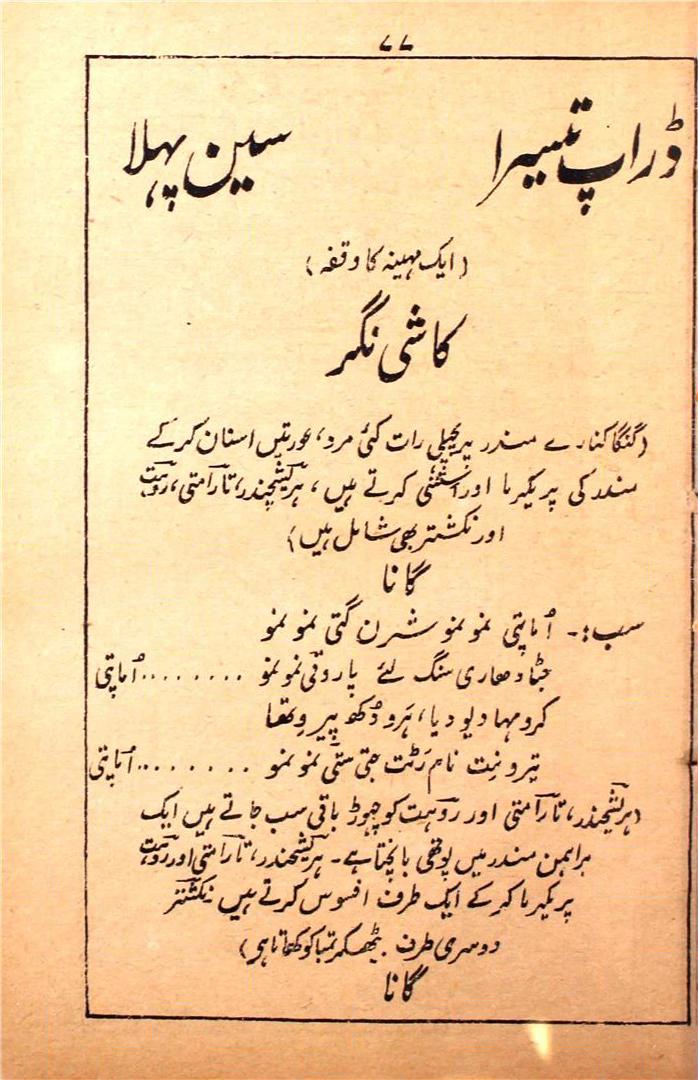 ۷۷
ڈراپ تیسرا سین پہلا
(ایک مہینہ کا وقفہ)
کاشی نگر
(گنگا کنارے مندر پر پچھلی رات کئی مرد، عورتیں اسنان کرکے
مندر کی پریکرما اور استتی کرتے ہیں، ہریشچندر، تارامتی، روہت
اور نکشتر بھی شامل ہیں)
گانا
سب:۔ اُماپتی نمو نمو شرن گتی نمو نمو
جٹا دھاری سنگ لئے پاروتی نمو نمو ........ اُماپتی
کرو مہا دیو دیا، ہرو دُکھ پیر وتھا
تیرو نِت نام رَٹت جتی ستی نمو نمو ........ اُماپتی
(ہریشچندر، تارامتی اور روہت کو چھوڑ باقی سب جاتے ہیں ایک
براہمن مندر میں پوتھی بانچتا ہے۔ ہریشچندر، تارامتی اور روہت
پریکرما کرکے ایک طرف افسوس کرتے ہیں نکشتر
دوسری طرف بیٹھکر تمباکو کھاتا ہی)
گانا